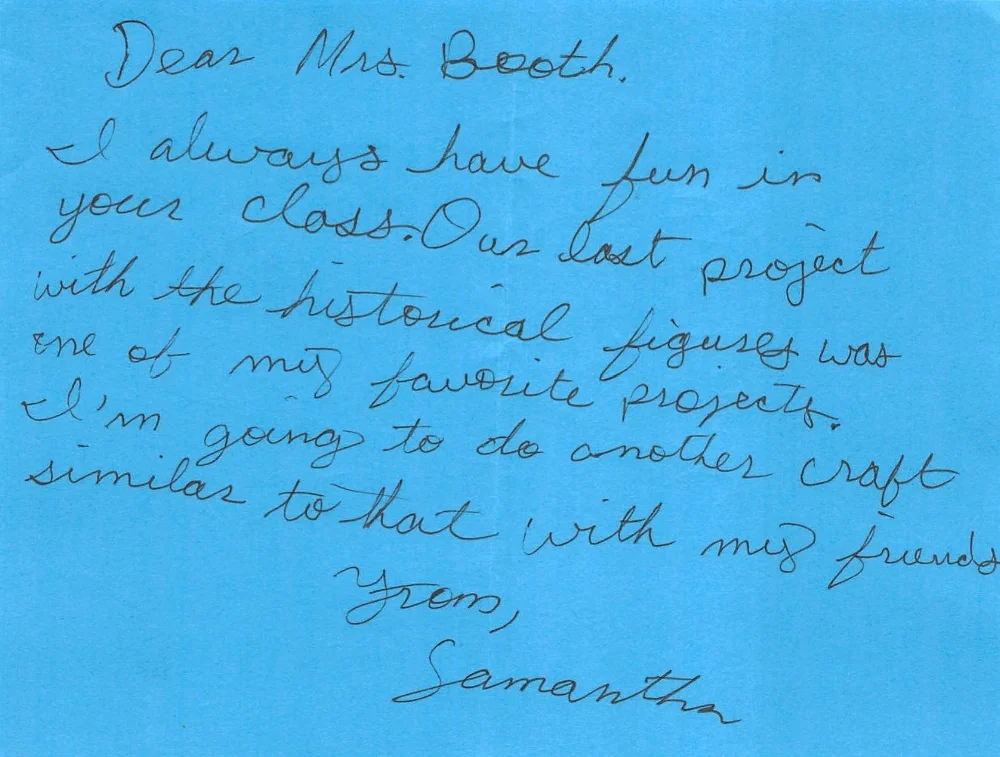 Dear Mrs. Booth.
I always have fun in
your class. Our last project
with the historical figures was
one of my favorite projects.
I'm going to do another craft
similar to that with my friends
From,
Samantha